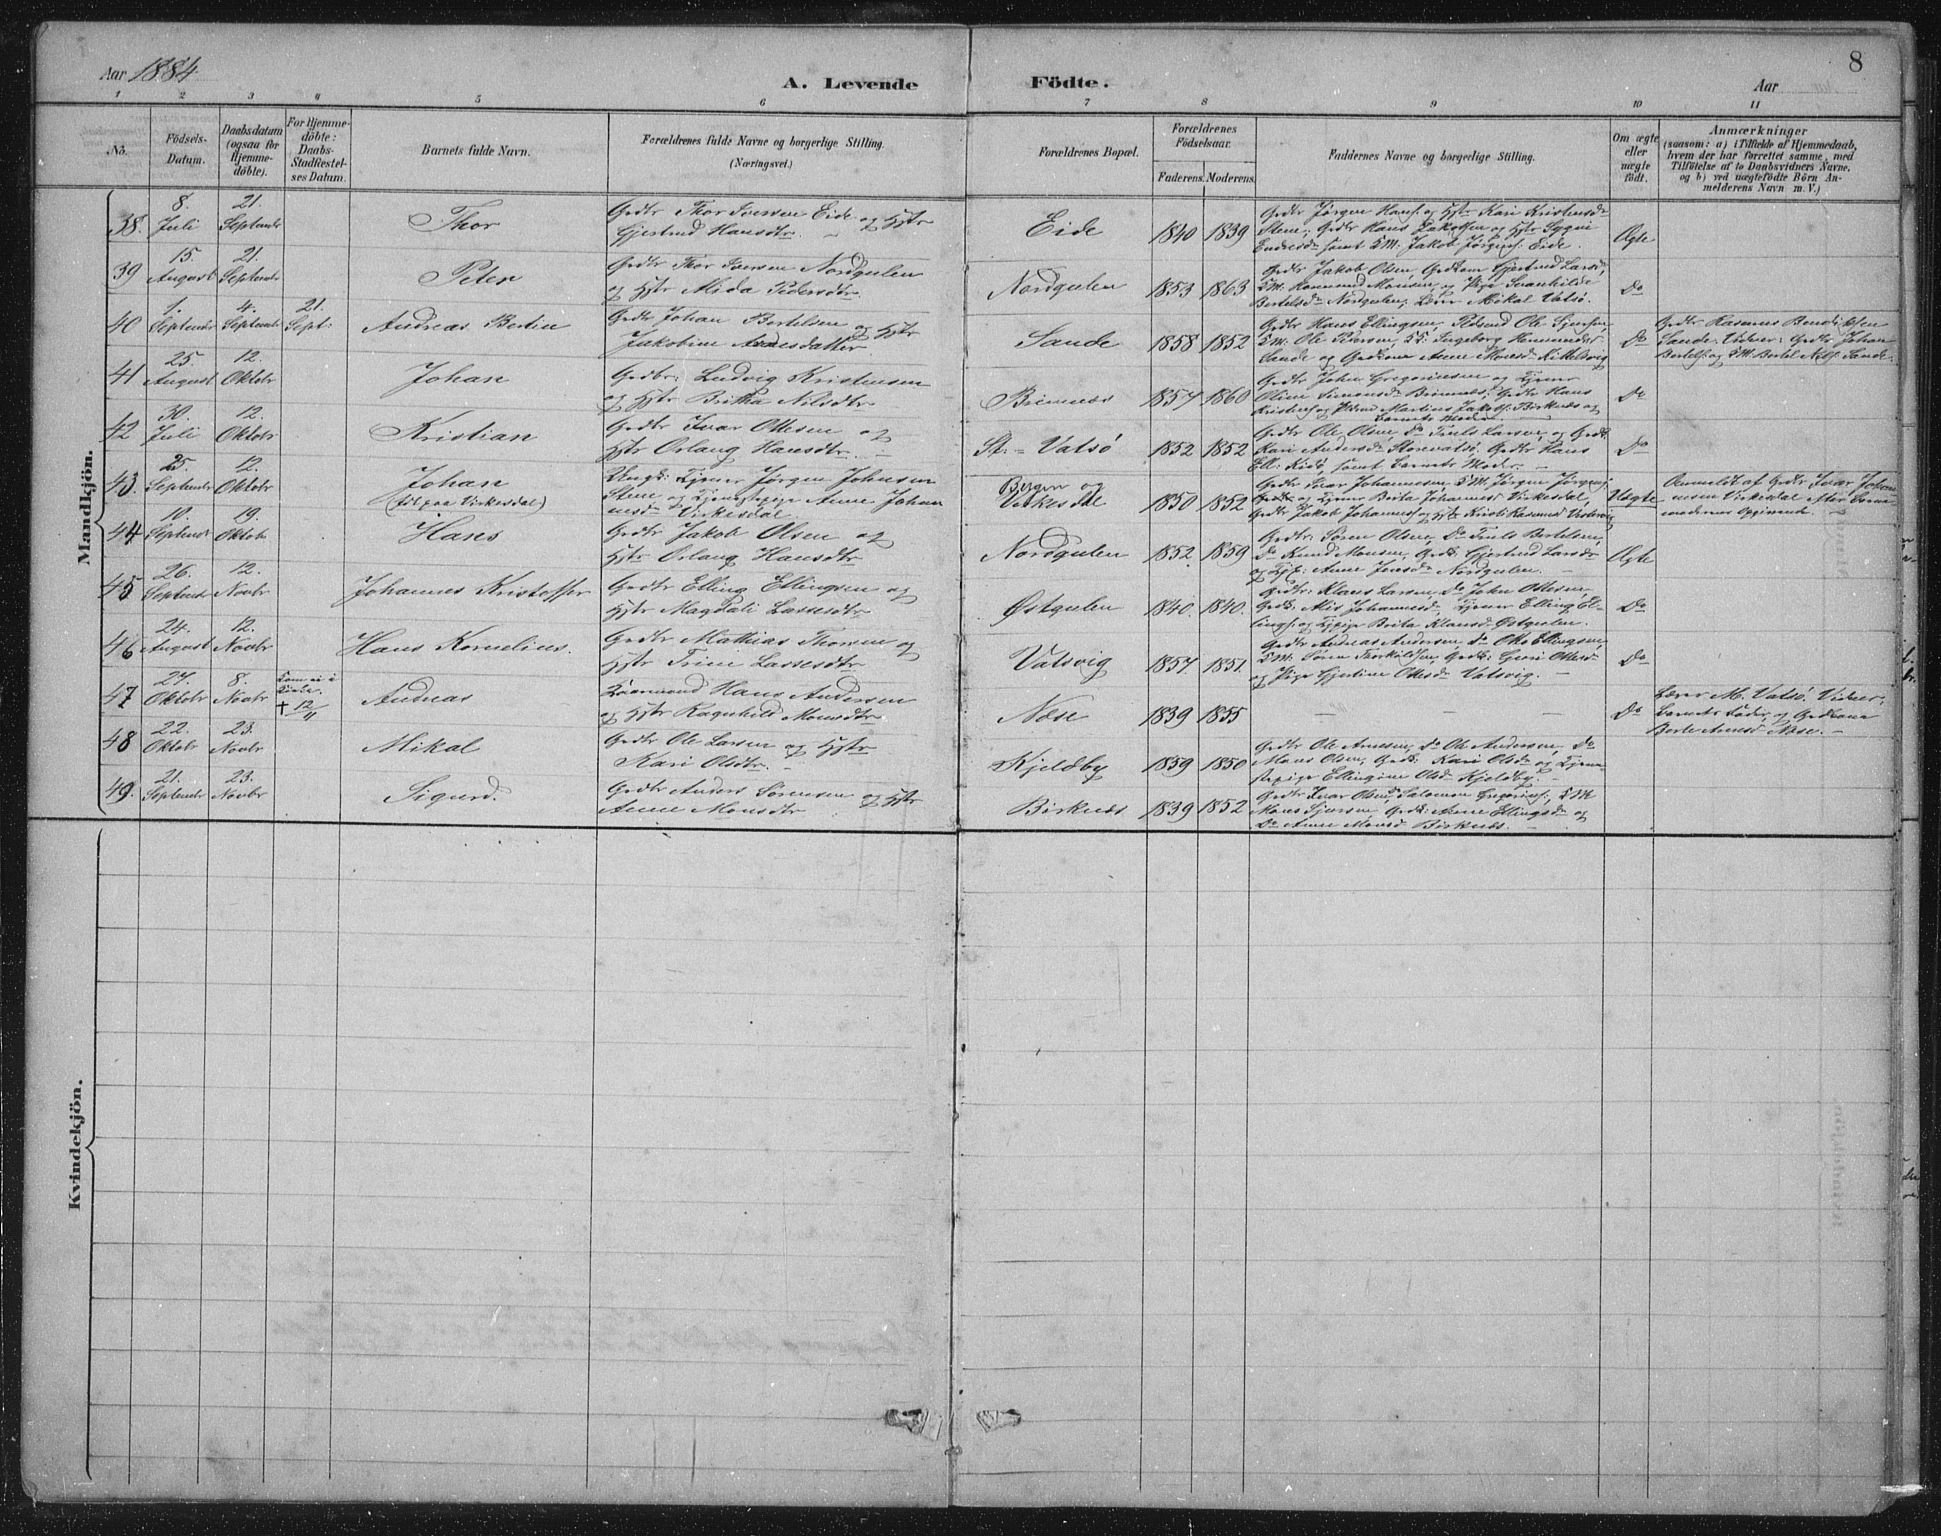 Aar 1884
A. Levende Födte.
Aar
8
1 2 3 4 5 6 7 8 9 10 11
No.
Födsels-Datum.
Daabsdatum (ogsaa for Hjemme-döbte).
For Hjemme-döbte: Daabs-Stadfæstel-ses Datum.
Barnets fulde Navn.
Forældrenes fulde Navne og borgerlige Stilling. (Næringsvei.)
Forældrenes Bopæl.
Forældrenes Födselsaar.
Faderens. Moderens.
Faddernes Navne og borgerlige Stilling.
Om ægte eller uægte födt.
Anmærkninger
(saasom: a) i Tilfælde af Hjemmedaab, hvem der har forrettet samme, med Tilföielse af to Daabsvidners Navne, og b) ved uægtefödte Börn An-melderens Navn m. V.)
Mandkjön.
38. 8. Juli 21. September Thor Grdbr Thor Iversen Eide og Hstr Gjertrud Hansdtr. Eide 1840 1839 Grdbr Jörgen Hans. og Hstr Kari Kristensdr Stene; Grdbr Hans Jakobsen og Hstr Sygni Endresdr samt U.M. Jakob Jörgens. Eide. Ægte
39 15. August 21. September Peter Grdbr Thor Iversen Nordgulen og Hstr Alida Pedersdtr. Nordgulen 1853 1863 Grdbr Jakob Olsen, Grdkone Gjertrud Larsdr, U.M. Hammund Monsen, og Pige Svanhilde Bertelsdr Nordgulen, Lærer Mikal Vatsö. Do
40 1. September 4. September 21. Sept: Andreas Bertin Grdbr Johan Bertelsen og Hstr Jakobine Andersdatter Sande 1858 1852 Grdbr Hans Ellingsen, U.M. Ole Iversen, Ingeborg Sande og Grdkone Anne Monsdr Do Grdbr Rasmus Bendiksen Sande. Vidner: Grdbr Johan Bertels. og U.M. Bertel Nils. Sande.
41 25. August 12. Oktobr Johan Grdbr: Ludvig Kristensen og Hstr Britha Nilsdtr. Brimnes 1857 1860 Grdbr John Gregoriussen og Tjener Oline Simonsdr Brimnes, Grdbr Hans Martinus Jakobs. Birknes og Barnets Moder. Do
42 30. Juli 12. Oktobr Kristian Grdbr Ivar Ottesen og Hstr Orlaug Hansdtr. St: Vatsö 1852 1852 Grdbr Ole Olsen, Do Larsen, og Grdk. Kari Andersdr Storevatsö. Grdbr Hans samt Barnets Moder. Do
43. 25. September 12. Oktobr Johan (födt paa Virkesdal) Ungk: Tjener Jörgen Johnsen Stene og Tjenestepige Anne Johannesdr Virkesdal. Bergen og Virkesdal 1850 1852 Grdbr Ivar Johannesen, U.M. Jörgen Jörgens. og Tjener Brita Johannesdr Virkesdal, Grdbr Jakob Johannes. og Hstr Kristi Rasmusdr Uægte Anmeldt af Grdbr Ivar Johannesen Virkesdal efter Barnemoderens Opgivende.
44 10. September 19. Oktobr Hans Grdbr Jakob Olsen og Hstr Orlaug Hansdtr Nordgulen 1852. 1859 Grdbr: Sören Olsen, Do Bertelsen, Do Knud Monsen, Grdk: Gjertrud Larsdr og Tjp: Anne Jensdr Nordgulen. Ægte
45 26. September 12. Novbr Johannes Kristoffer Grdbr Elling Ellingsen og Hstr Magdali Lassesdtr. Östgulen 1840. 1840. Grdbr: Klaus Larsen, Do John Ottesen, Grdk: Johannesdr, Tjener Elling Ellings. og Tjpige Brita Klausdr Östgulen. Do
46 24. August 12. Novbr Hans Kornelius. Grdbr Mathias Thorsen og Hstr Trine Lassesdtr. Vatsvig 1857. 1851. Grdbr Andreas Andersen, Do Otto Ellingsen, U.M. Sören Thorkildsen, Grdk: Ottesdr og Pige Gjertine Ottesdr Vatsvig. Do
47 27. Oktobr 8. Novbr Kom ei i Kirke. † 12/11 Andreas Kaarmand Hans Andersen og Hstr Ragnhild Monsdtr Næse 1839 1855 — — — Do Lærer M. Vatsö. Vidner: Barnets Fader, og Grdkone Berte Arnesdr Næse.
48 22. Oktobr 23. Novbr Mikal Grdbr Ole Larsen og Hstr Kari Olsdtr. Kjeldby 1859 1850 Grdbr Ole Arnesen, Do Ole Andersen, Do Mons Olsen, Grdk: Kari Olsdr og Tjenestepige Ellingine Olsdr Kjeldby. Do
49. 21. September 23. Novbr Sigurd. Grdbr Anders Sörensen og Hstr Anne Monsdtr Birknes 1839 1852 Grdbr Ivar Olsen, Salomon Gregorius., U.M. Mons Sjursen, Grdk: Anne Ellingsdr og Do Anne Monsdr Birknes.
Kvindekjön.